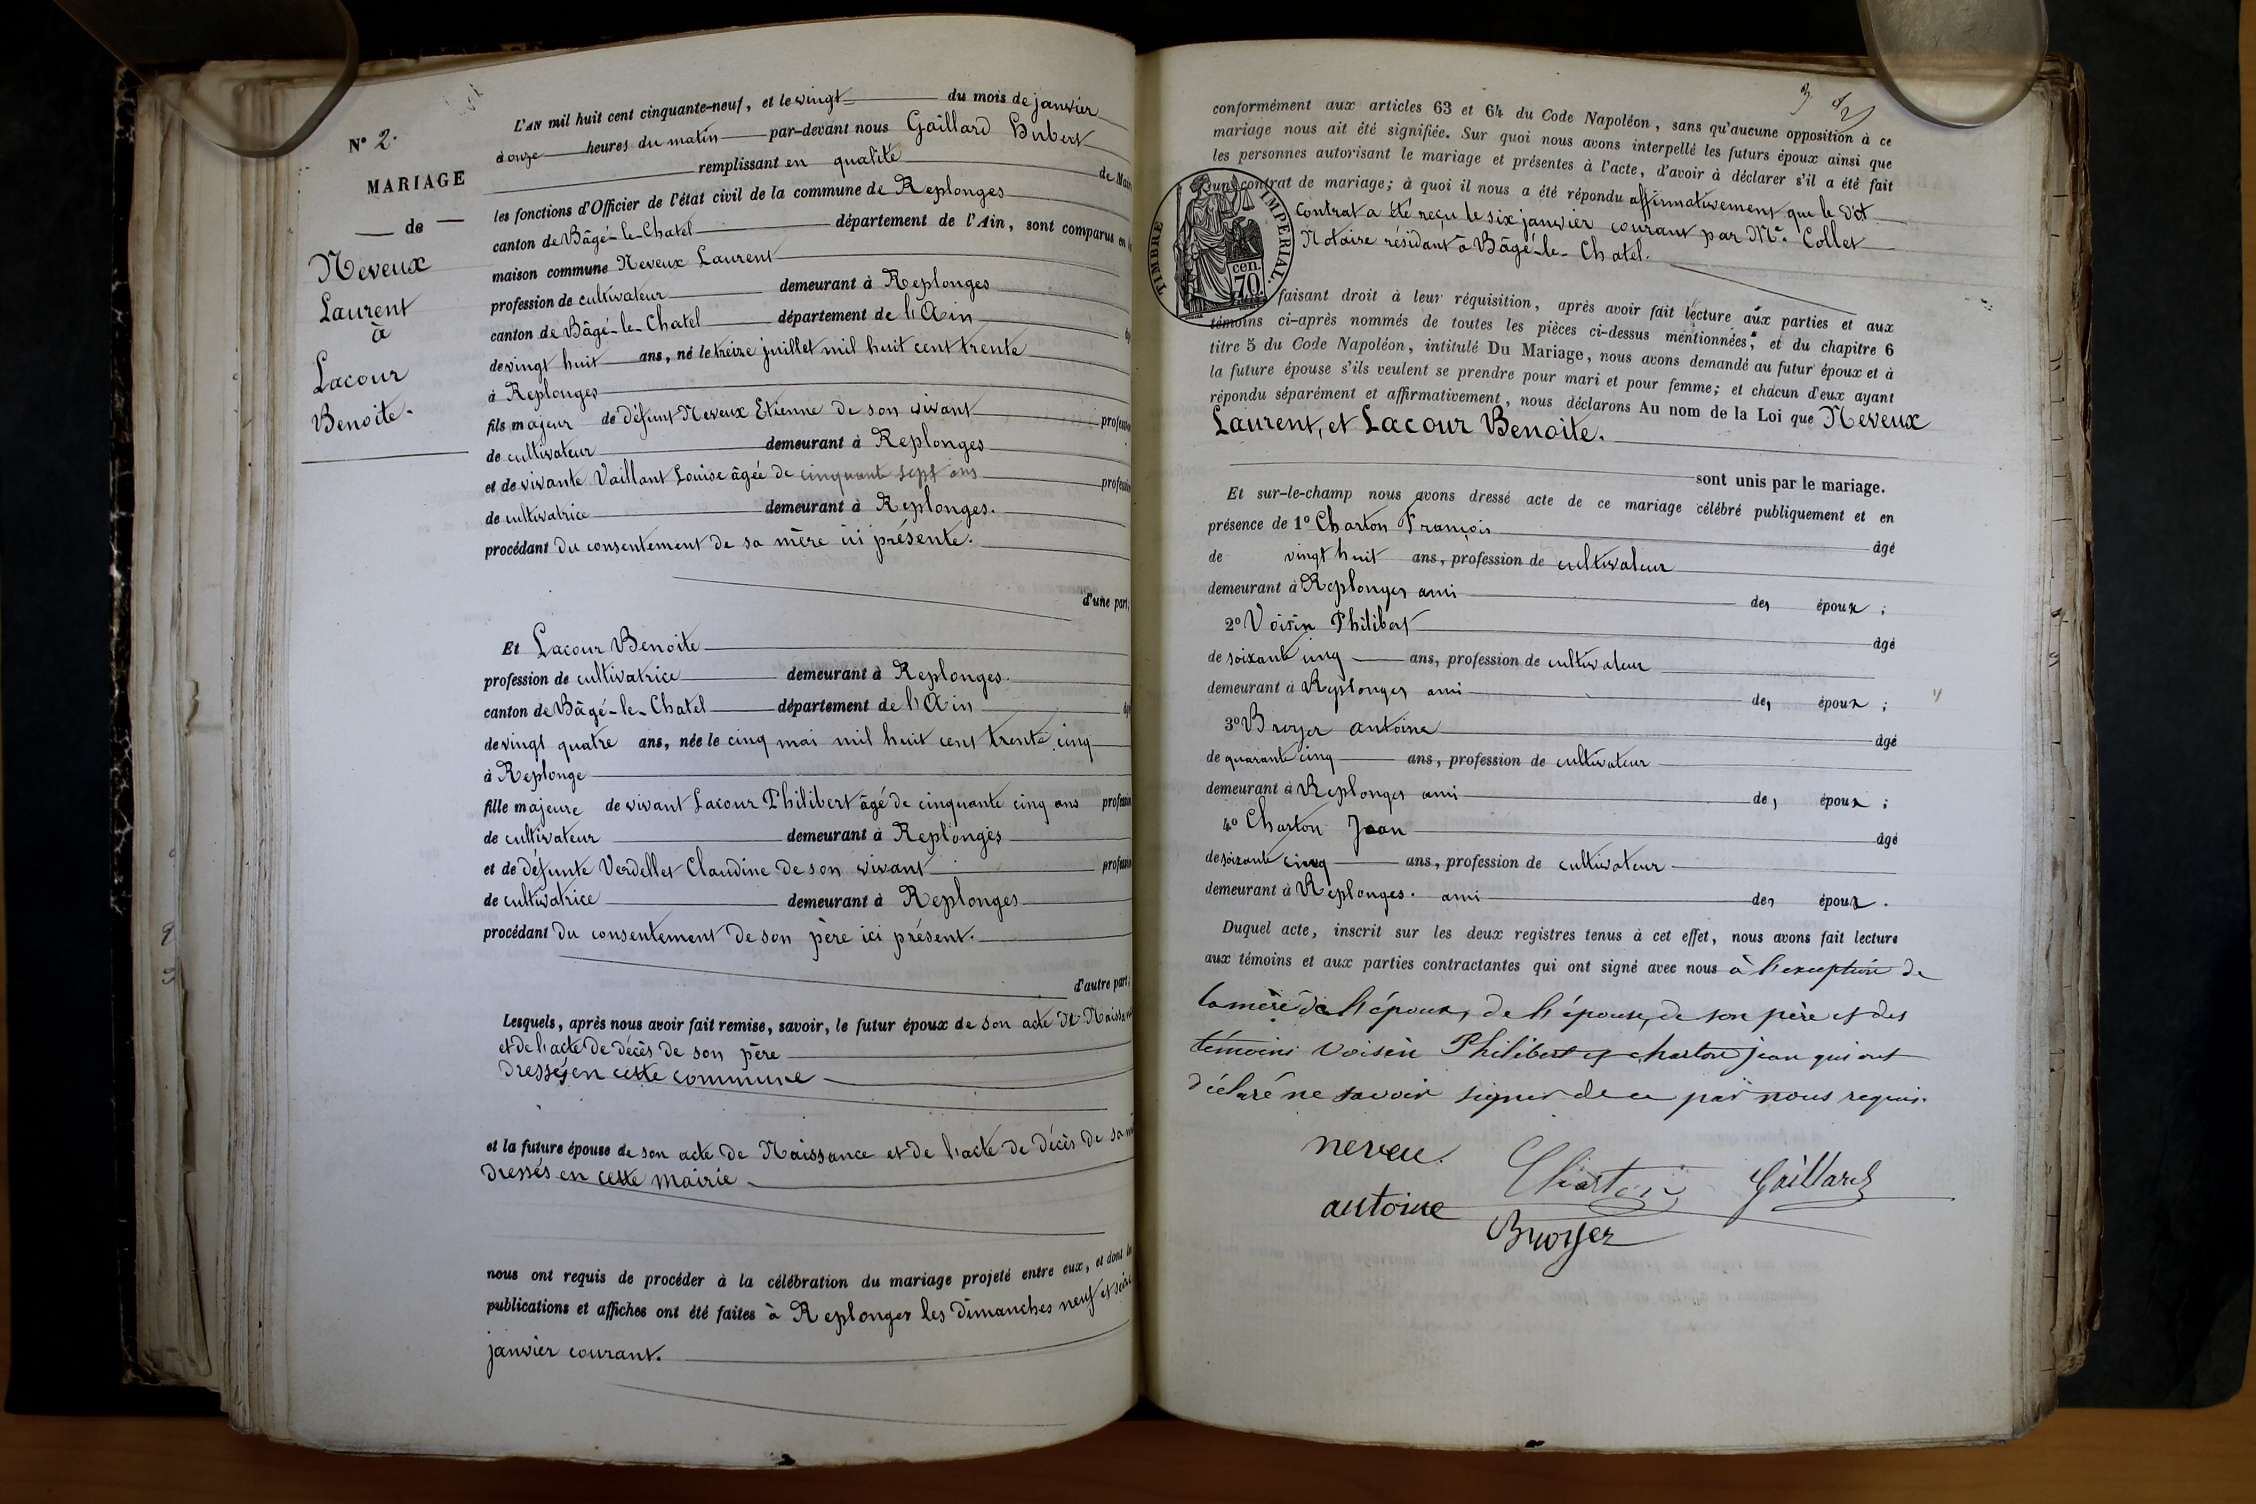 N° 2.
MARIAGE
de
Neveux
Laurent
à
Lacour
Benoite.
L'AN mil huit cent cinquante-neuf, et le vingt du mois de janvier
à onze heures du matin par-devant nous Gaillard Hubert
remplissant en qualité de Maire
les fonctions d'Officier de l'état civil de la commune de Replonges
canton de Bâgé-le-Chatel département de l'Ain, sont comparus en la
maison commune Neveux Laurent
profession de cultivateur demeurant à Replonges
canton de Bâgé-le-Chatel département de l'Ain
de vingt huit ans, né le treize juillet mil huit cent trente
à Replonges
fils majeur de défunt Neveux Etienne de son vivant profession
de cultivateur demeurant à Replonges
et de vivante Vaillant Louise âgée de cinquante sept ans profession
de cultivatrice demeurant à Replonges.
procédant du consentement de sa mère ici présente.
d'une part;
Et Lacour Benoite
profession de cultivatrice demeurant à Replonges.
canton de Bâgé-le-Chatel département de l'Ain
de vingt quatre ans, née le cinq mai mil huit cent trente cinq
à Replonge
fille majeure de vivant Lacour Philibert âgé de cinquante cinq ans profession
de cultivateur demeurant à Replonges
et de défunte Verdellet Claudine de son vivant profession
de cultivatrice demeurant à Replonges
procédant du consentement de son père ici présent.
d'autre part;
Lesquels, après nous avoir fait remise, savoir, le futur époux de son acte de Naissance
et de l'acte de décès de son père
dressés en cette commune
et la future épouse de son acte de Naissance et de l'acte de décès de sa
dressés en cette mairie
nous ont requis de procéder à la célébration du mariage projeté entre eux, et dont les
publications et affiches ont été faites à Replonges les dimanches neuf et seize
janvier courant.
conformément aux articles 63 et 64 du Code Napoléon, sans qu'aucune opposition à ce
mariage nous ait été signifiée. Sur quoi nous avons interpellé les futurs époux ainsi que
les personnes autorisant le mariage et présentes à l'acte, d'avoir à déclarer s'il a été fait
un contrat de mariage; à quoi il nous a été répondu affirmativement que le dit
Contrat a été reçu le six janvier courant par Me. Collet
Notaire résidant à Bâgé-le-Chatel.
TIMBRE IMPERIAL.
cen.
70.
faisant droit à leur réquisition, après avoir fait lecture aux parties et aux
témoins ci-après nommés de toutes les pièces ci-dessus mentionnées, et du chapitre 6
titre 5 du Code Napoléon, intitulé Du Mariage, nous avons demandé au futur époux et à
la future épouse s'ils veulent se prendre pour mari et pour femme; et chacun d'eux ayant
répondu séparément et affirmativement, nous déclarons Au nom de la Loi que Neveux
Laurent, et Lacour Benoite.
sont unis par le mariage.
Et sur-le-champ nous avons dressé acte de ce mariage célébré publiquement et en
présence de 1° Charton François âgé
de vingt huit ans, profession de cultivateur
demeurant à Replonges ami des époux;
2° Voisin Philibert âgé
de soixante cinq ans, profession de cultivateur
demeurant à Replonges ami des époux;
3° Broyer antoine âgé
de quarante cinq ans, profession de cultivateur
demeurant à Replonges ami des époux;
4° Charton Jean âgé
de soixante cinq ans, profession de cultivateur
demeurant à Replonges. ami des époux.
Duquel acte, inscrit sur les deux registres tenus à cet effet, nous avons fait lecture
aux témoins et aux parties contractantes qui ont signé avec nous à l'exception de
la mère de l'époux, de l'épouse, de son père et des
témoins Voisin Philibert et charton jean qui ont
déclaré ne savoir signer de ce par nous requis.
neveu.
Charton
Gaillard
antoine
Broyer